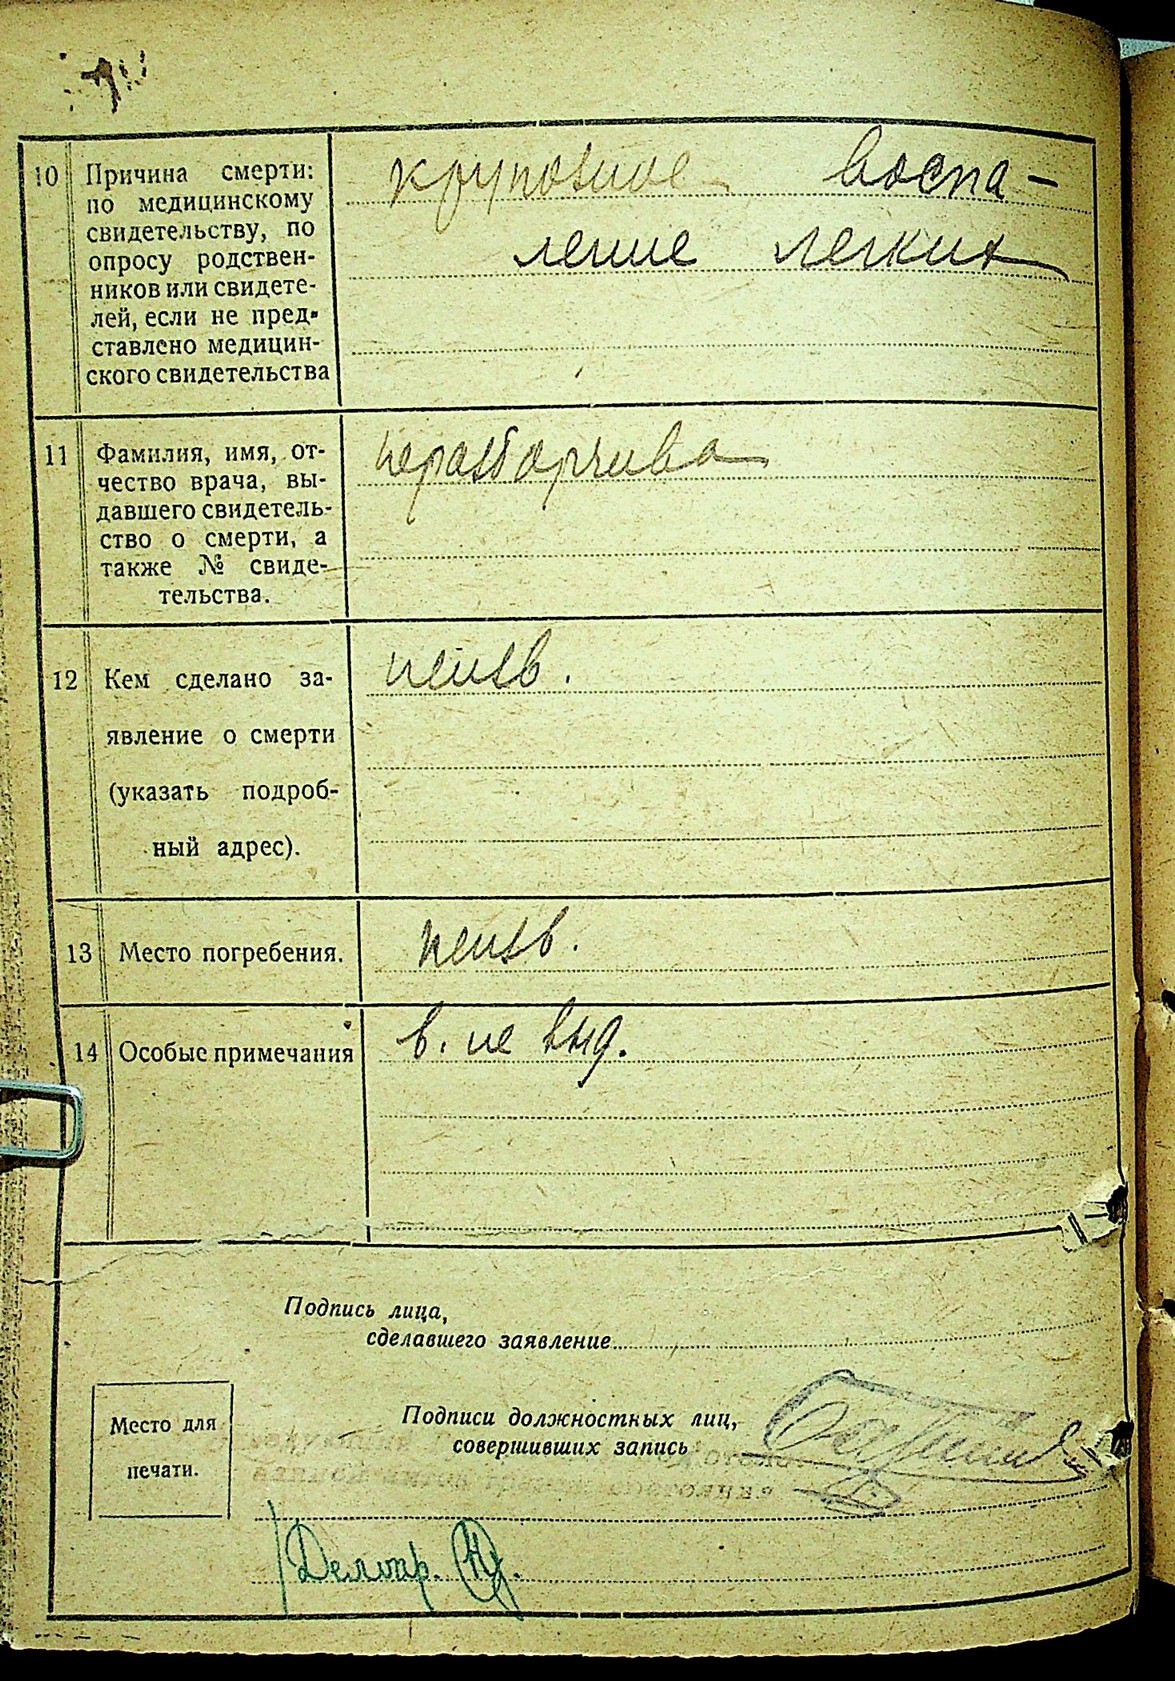 10 Причина смерти: крупозное воспа-
по медицинскому
свидетельству, по
опросу родствен- ление легких
ников или свидете-
лей, если не пред-
ставлено медицин-
ского свидетельства
11 Фамилия, имя, от- неразборчиво
чество врача, вы-
давшего свидетель-
ство о смерти, а
также № свиде-
тельства.
12 Кем сделано за- неизв.
явление о смерти
(указать подроб-
ный адрес).
13 Место погребения. неизв.
14 Особые примечания в. не выд.
Подпись лица,
сделавшего заявление
Место для
печати.
Подписи должностных лиц,
совершивших запись
Делопр.